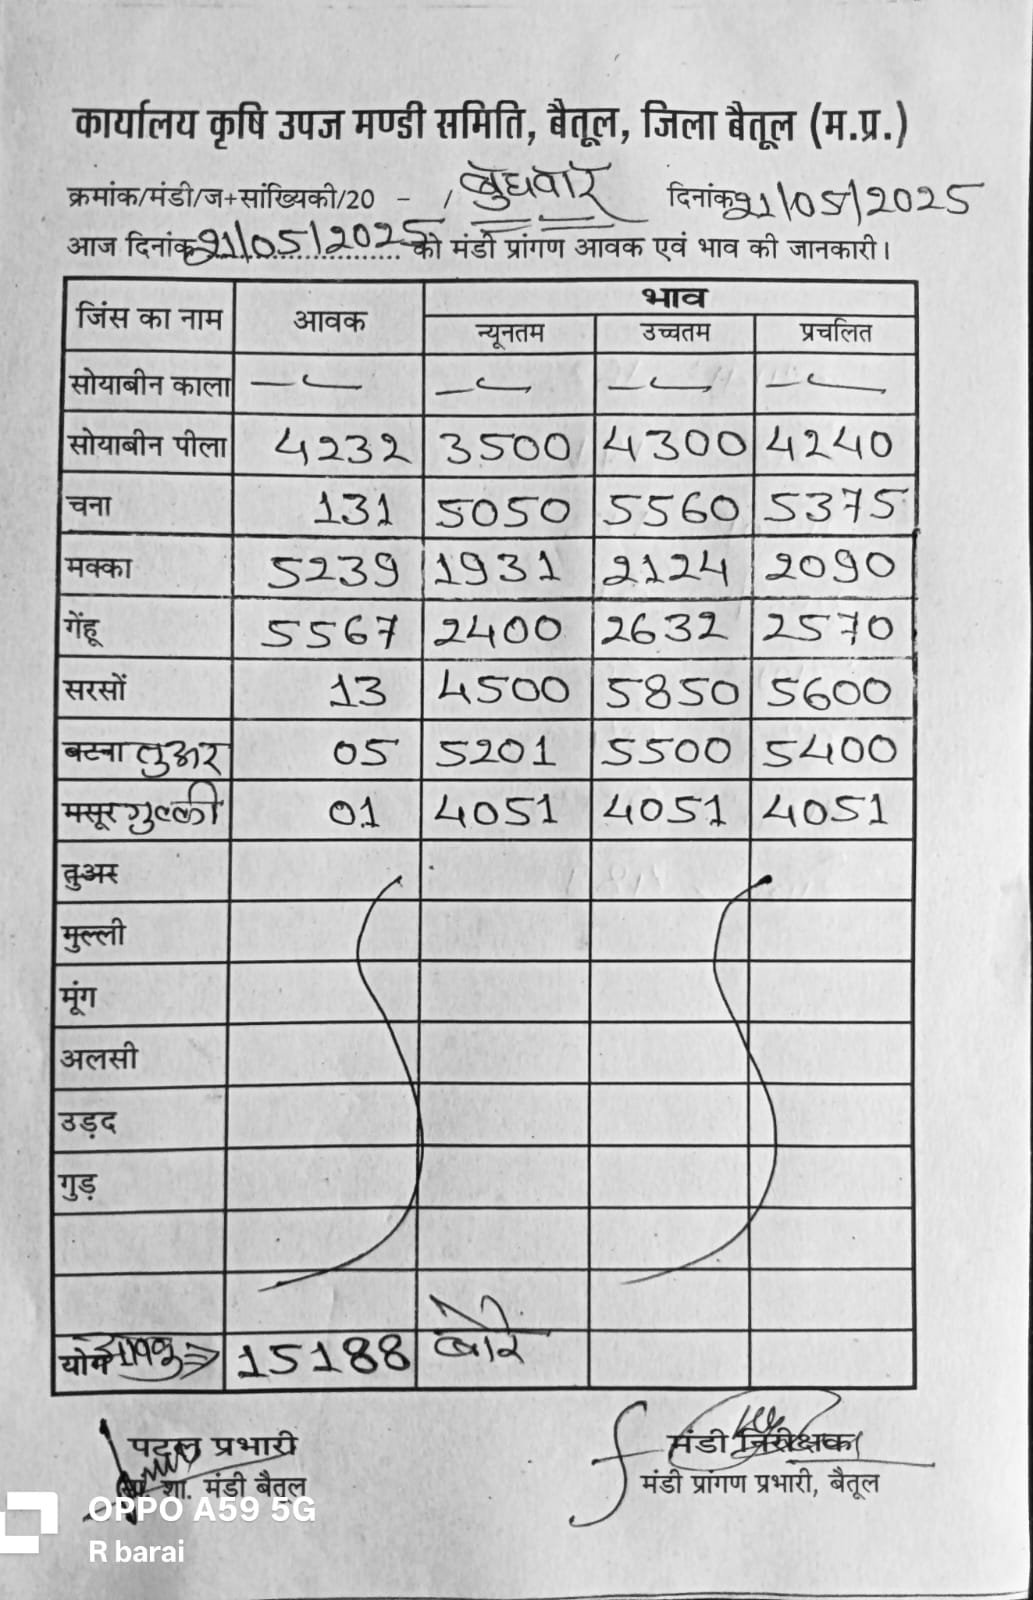 कार्यालय कृषि उपज मण्डी समिति, बैतूल, जिला बैतूल (म.प्र.)
क्रमांक/मंडी/ज+सांख्यिकी/20 - / बुधवार दिनांक 21/05/2025
आज दिनांक 21/05/2025 को मंडी प्रांगण आवक एवं भाव की जानकारी।
जिंस का नाम आवक भाव
न्यूनतम उच्चतम प्रचलित
सोयाबीन काला — — — —
सोयाबीन पीला 4232 3500 4300 4240
चना 131 5050 5560 5375
मक्का 5239 1931 2124 2090
गेंहू 5567 2400 2632 2570
सरसों 13 4500 5850 5600
बटबा तुअर 05 5201 5500 5400
मसूर गुल्ली 01 4051 4051 4051
तुअर
मुल्ली
मूंग
अलसी
उड़द
गुड़
योग आवक 15188 बोरे
पटल प्रभारी मंडी निरीक्षक
शा. मंडी बैतूल मंडी प्रांगण प्रभारी, बैतूल
OPPO A59 5G
R barai